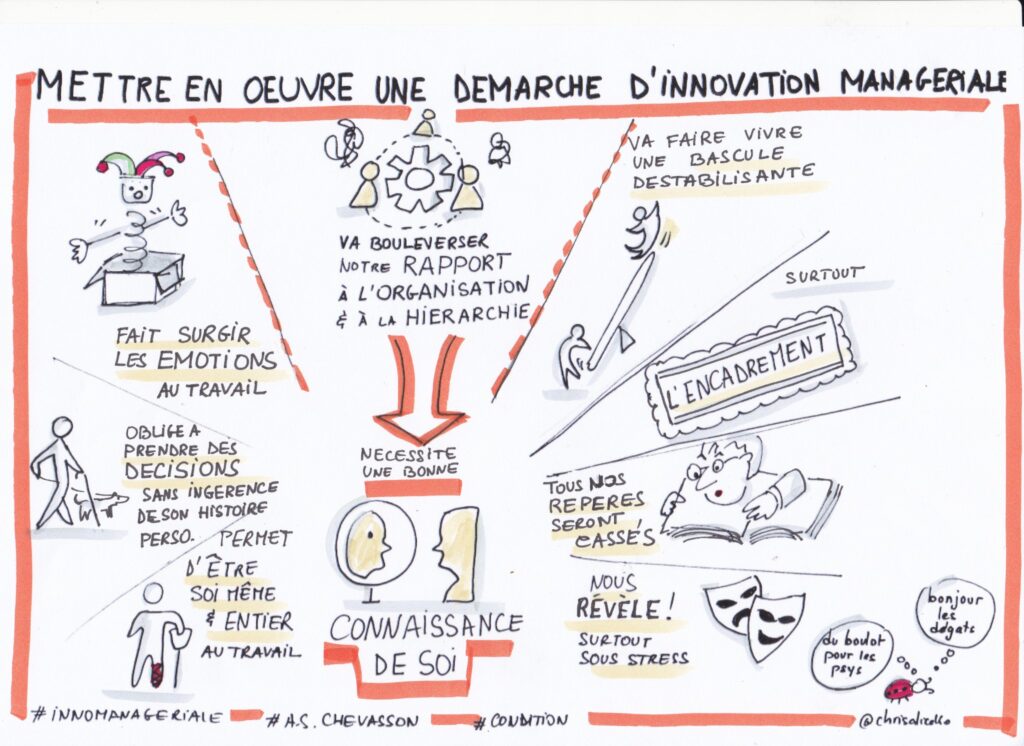 METTRE EN OEUVRE UNE DEMARCHE D'INNOVATION MANAGERIALE
FAIT SURGIR
LES EMOTIONS
AU TRAVAIL
OBLIGE A
PRENDRE DES
DECISIONS
SANS INGERENCE
DE SON HISTOIRE
PERSO.
PERMET
D'ÊTRE
SOI MÊME
& ENTIER
AU TRAVAIL
VA BOULEVERSER
NOTRE RAPPORT
À L'ORGANISATION
& À LA HIERARCHIE
NECESSITE
UNE BONNE
CONNAISSANCE
DE SOI
VA FAIRE VIVRE
UNE BASCULE
DESTABILISANTE
SURTOUT
L'ENCADREMENT
TOUS NOS
REPERES
SERONT
CASSÉS
NOUS
RÉVÈLE!
SURTOUT
SOUS STRESS
bonjour
les
dégats
du boulot
pour les
psys
#INNOMANAGERIALE
#A.S. CHEVASSON
#CONDITION